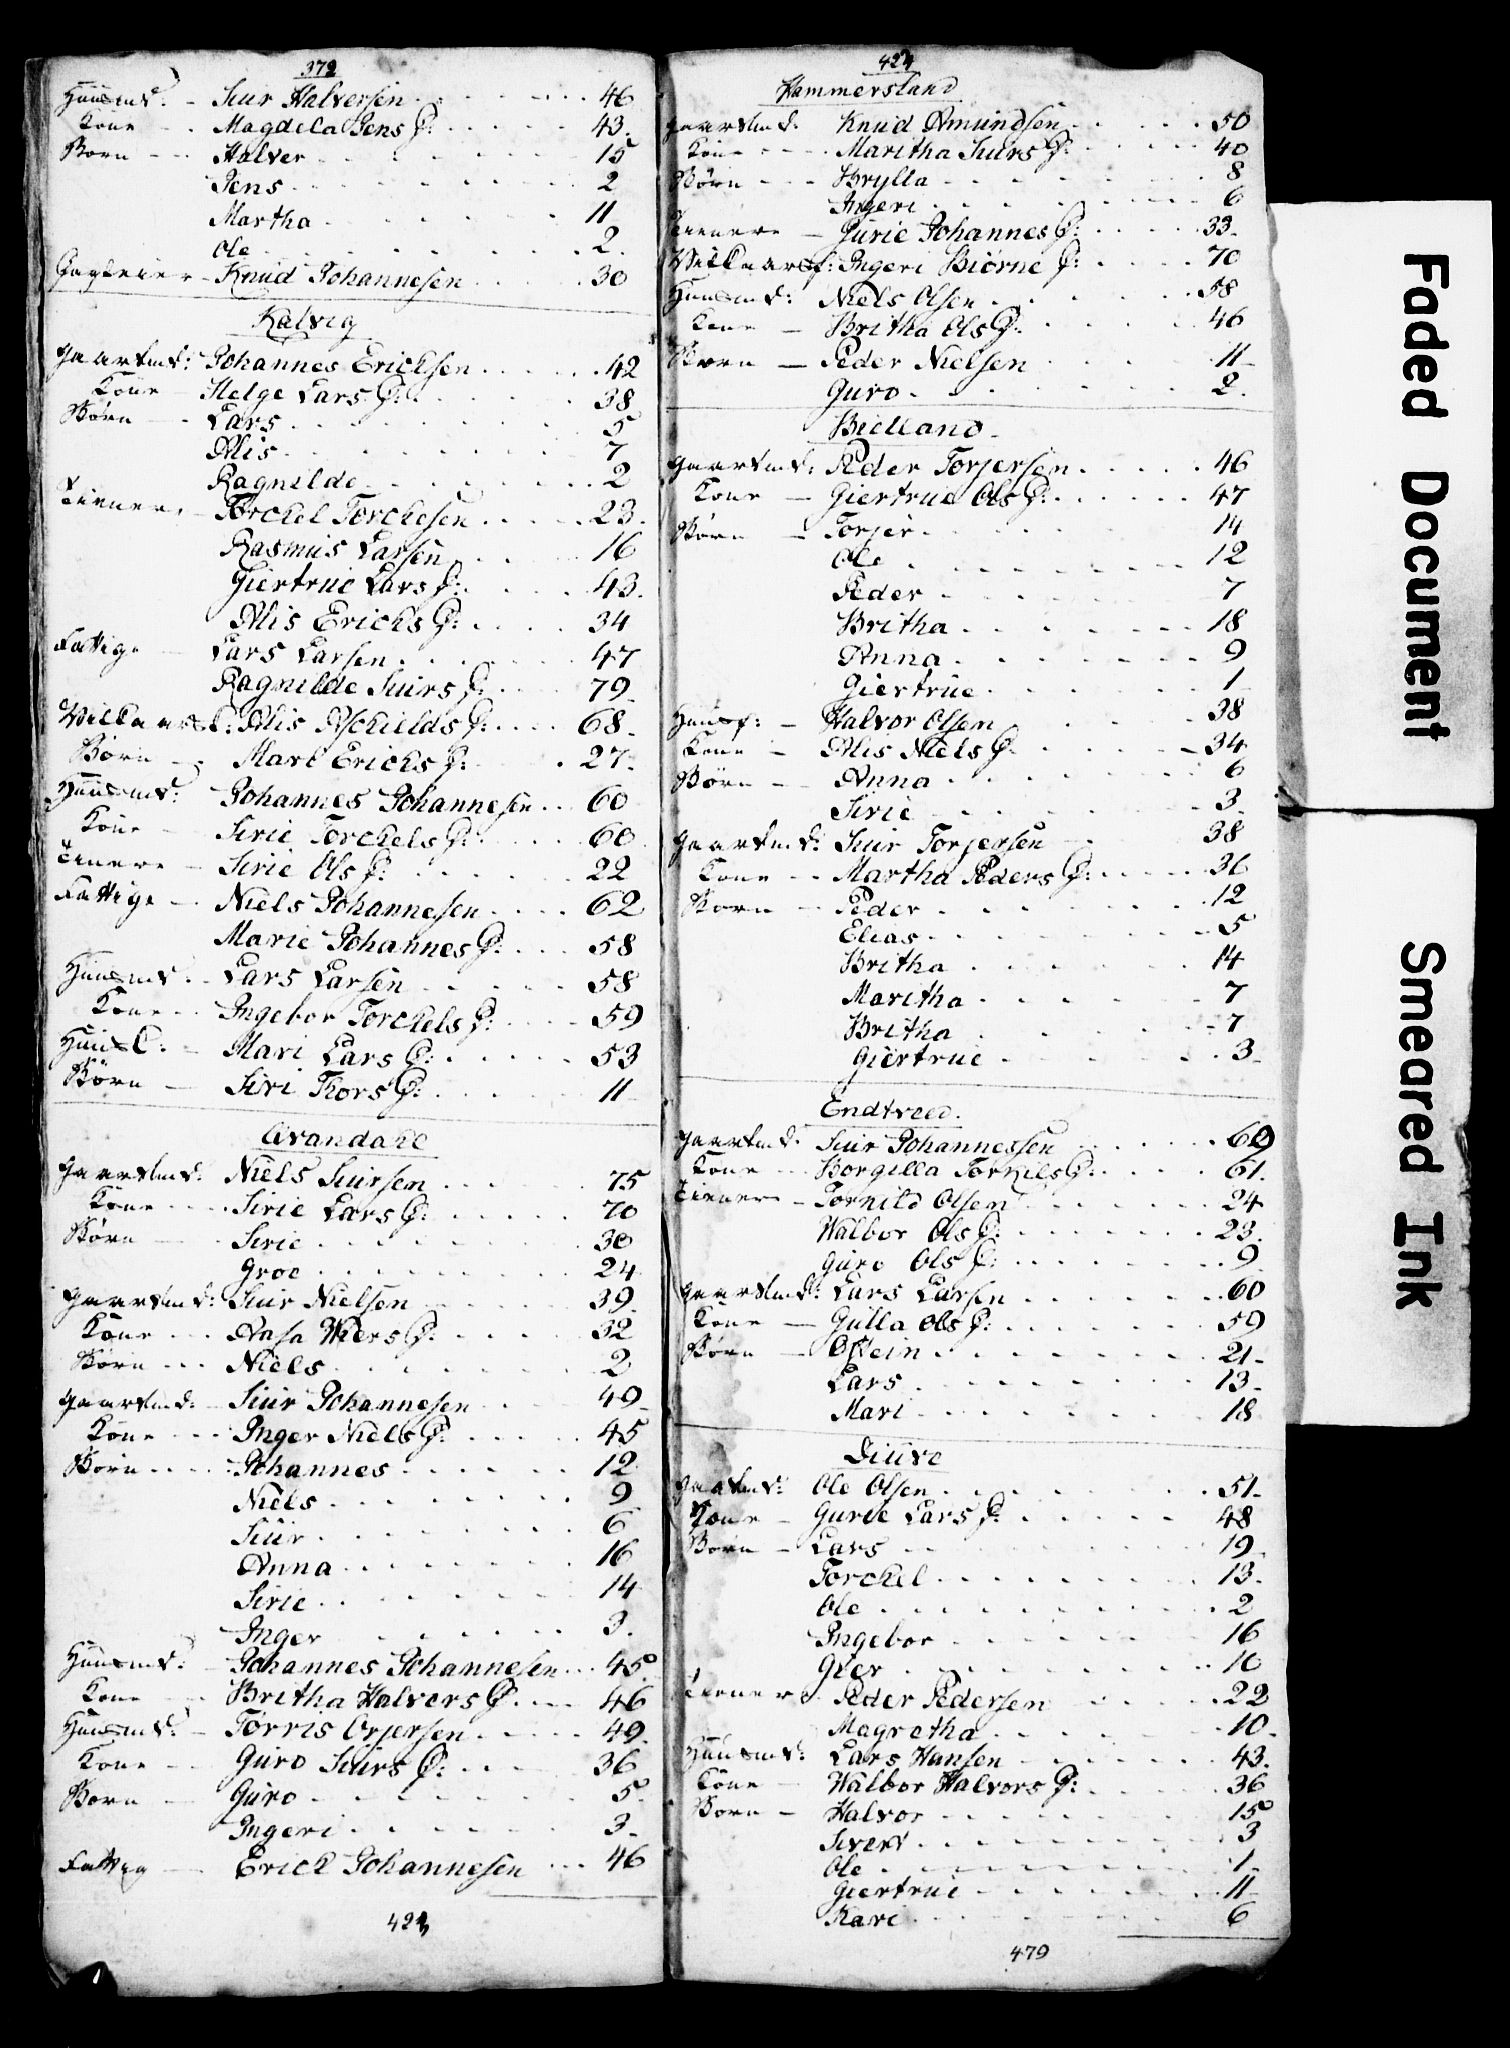 372
Huusmd: - Siur Halversen 46
Kone - Magdela Jens D: 43
Børn - Halver 15
Jens 2
Martha 11
Ole 2
Knud Johannesen 30
Kalvig
Gaardmd: Johannes Ericksen 42
Kone - Helge Lars D: 38
Børn - Lars 5
Alis 7
Ragnilde 2
Tienere - Torckel Torckesen 23
Rasmus Larsen 16
Giertrue Lars D: 43
Alis Ericks D: 34
Fattige - Lars Larsen 47
Ragnilde Siurs D: 79
Alis Aschields D: 68
Børn - Mari Ericks D: 27
Huusmd: Johannes Johannesen 60
Kone - Sirie Torckels D: 60
Tienere - Sirie Ols D: 22
Fattige - Niels Johannesen 62
Marie Johannes D: 58
Huusmd: Lars Larsen 58
Kone - Ingebor Torckels D: 59
Mari Lars D: 53
Børn - Siri Thors D: 11
Arandahl
Gaardmd: Niels Siursen 75
Kone - Sirie Lars D: 70
Børn - Sirie 30
Groe 24
Gaardmd: Siur Nielsen 39
Kone - Aasa Wiers D: 32
Børn - Niels 2
Gaardmd: Siur Johannesen 49
Kone - Inger Niels D: 45
Børn - Johannes 12
Niels 9
Siur 6
Anna 16
Sirie 14
Inger 3
Huusmd: Johannes Johannesen 45
Kone - Britha Halvers D: 46
Huusmd: - Torris Orjersen 49
Kone - Guro Siurs D: 36
Børn - Guro 5
Ingeri 3
Fattig - Erick Johannesen 46
424
424
Hammersland
Gaardmd: Knud Amundsen 50
Kone - Maritha Siurs D: 40
Børn - Brylla 8
Ingeri 6
Tienere - Gurie Johannes D: 33
Ingeri Biørne D: 70
Huusmd: Niels Olsen 58
Kone - Britha Ols D: 46
Børn - Peder Nielsen 11
Guro 2
Bielland
Gaardmd: Peder Torjersen 46
Kone - Giertrue Ols D: 47
Børn - Torjer 14
Ole 12
Peder 7
Britha 18
Anna 9
Giertrue 1
Huusf: - Halvor Olsen 38
Kone - Alis Niels D: 34
Børn - Anna 6
Sirie 3
Gaardmd: Siur Torjersen 38
Kone - Martha Peders D: 36
Børn - Peder 12
Elias 5
Britha 14
Maritha 7
Britha 7
Giertrue 3
Endtveed
Gaardmd: Siur Johannessen 60
Kone - Borgilla Torkels D: 61
Tienere - Tornild Olsen 24
Walbor Ols D: 23
Guro Ols D: 9
Gaardmd: Lars Larsen 60
Kone - Gulla Ols D: 59
Børn - Østein 21
Lars 13
Mari 18
Diuve
Gaardmd: Ole Olsen 51
Kone - Gurie Lars D: 48
Børn - Lars 19
Torckel 13
Ole 2
Ingebor 16
10
Tienere - Peder Pedersen 22
Magretha 10
Huusmd: Lars Hansen 43
Kone Walbor Halvors D: 36
Børn - Halvor 15
Sivert 3
Ole 1
Giertrue 11
Kari 6
479
Faded Document
Smeared Ink